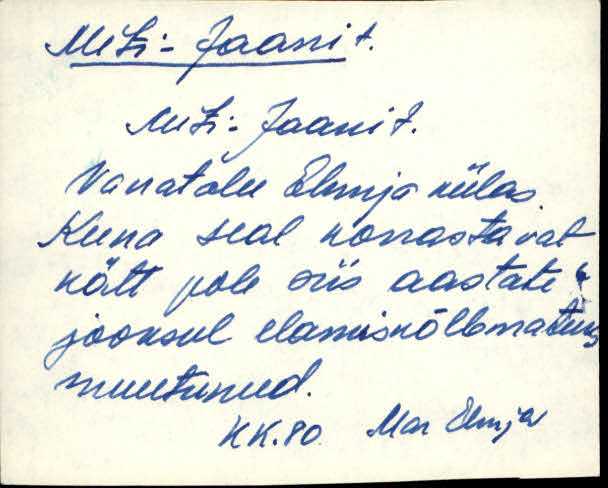 Meti-Jaani t.
Meti-Jaani t.
Vanatalu Elmja külas.
Kuna seal korrastavat
kätt pole siis aastate
jooksul elamiskõlbmatuks
muutunud.
KK.80 Mar Elmja